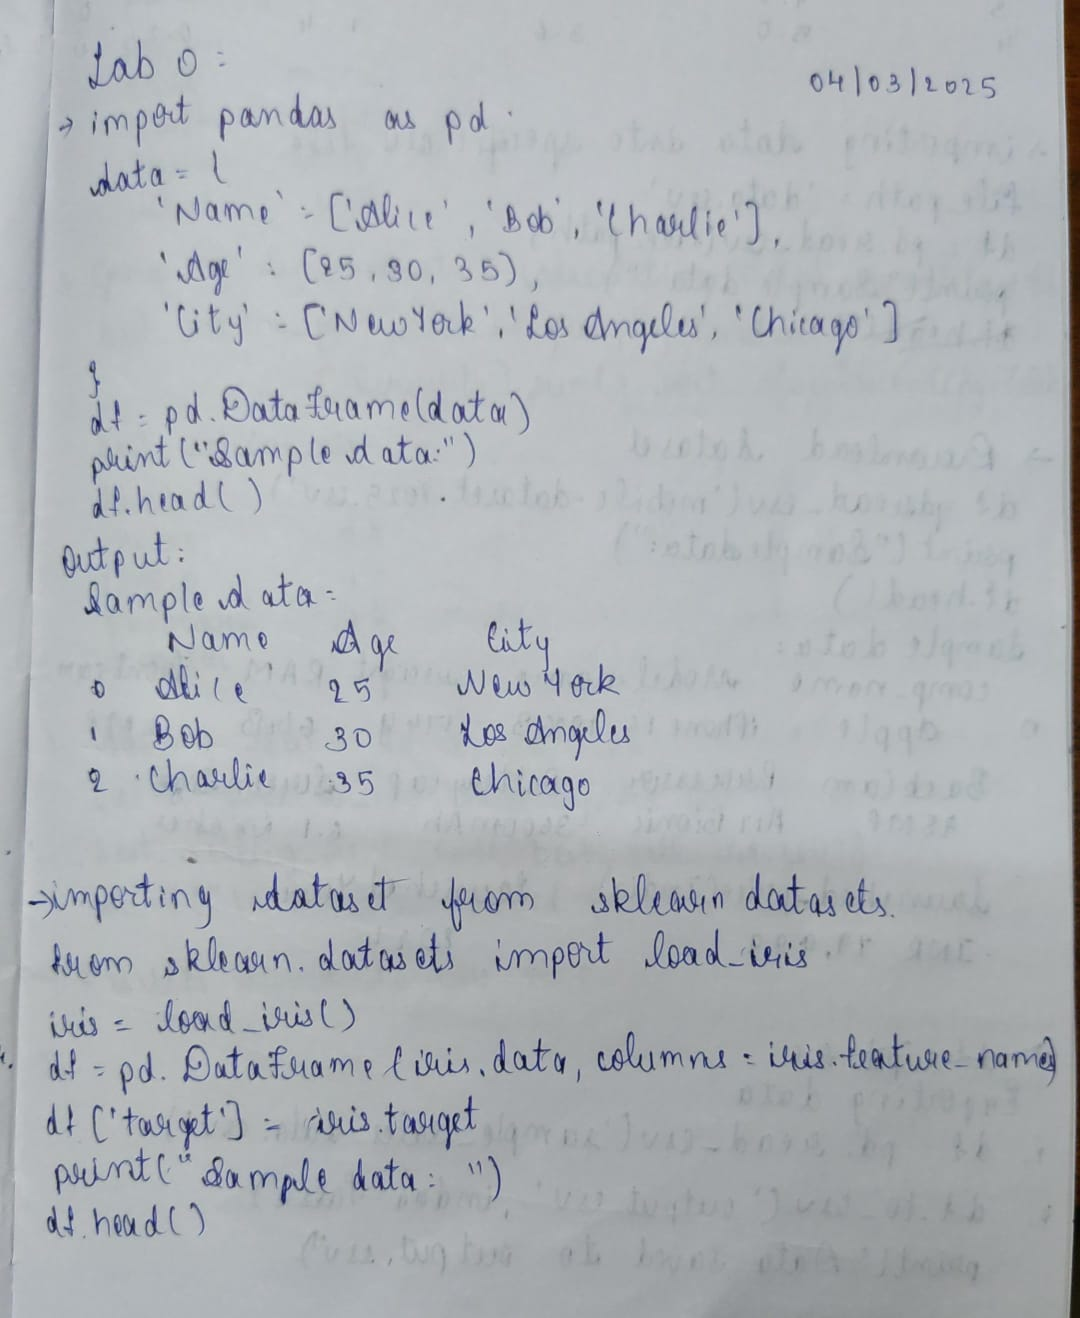 Lab 0:
04/03/2025
→ import pandas as pd
data = {
'Name' : ['Alice', 'Bob', 'Charlie'],
'Age' : [25, 30, 35],
'City' : ['New York', 'Los Angeles', 'Chicago']
}
df = pd.DataFrame(data)
print("Sample data:")
df.head()
Output:
Sample data:
Name Age City
0 Alice 25 New York
1 Bob 30 Los Angeles
2 Charlie 35 Chicago
→ importing dataset from sklearn datasets.
from sklearn.datasets import load_iris
iris = load_iris()
df = pd.DataFrame(iris.data, columns = iris.feature_names)
df['target'] = iris.target
print("Sample data: ")
df.head()